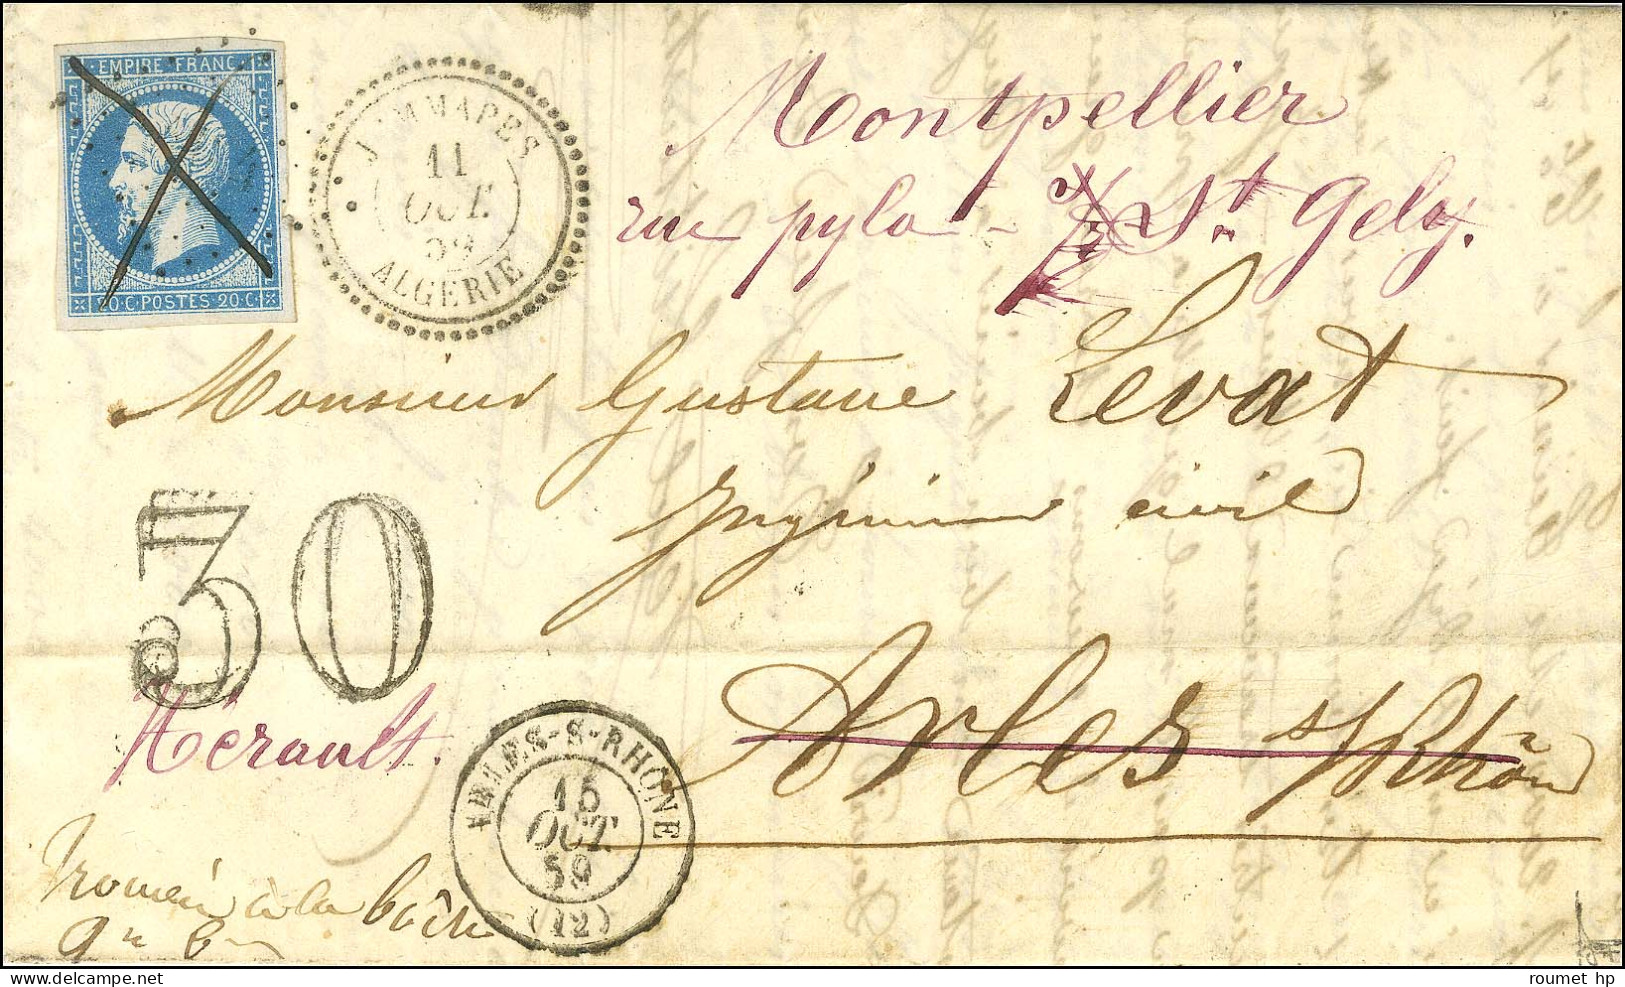 EMPIRE FRANC
20·C·POSTES·20·C·
JEMMAPES
11
OCT.
59
ALGERIE
Montpellier
rue pyla - St Gely.
Monsieur Gustave Levat
Ingénieur civil
30
Hérault.
Arles s/Rhône
ARLES-S-RHÔNE
15
OCT.
59
(12)
à la boîte
roumet hp